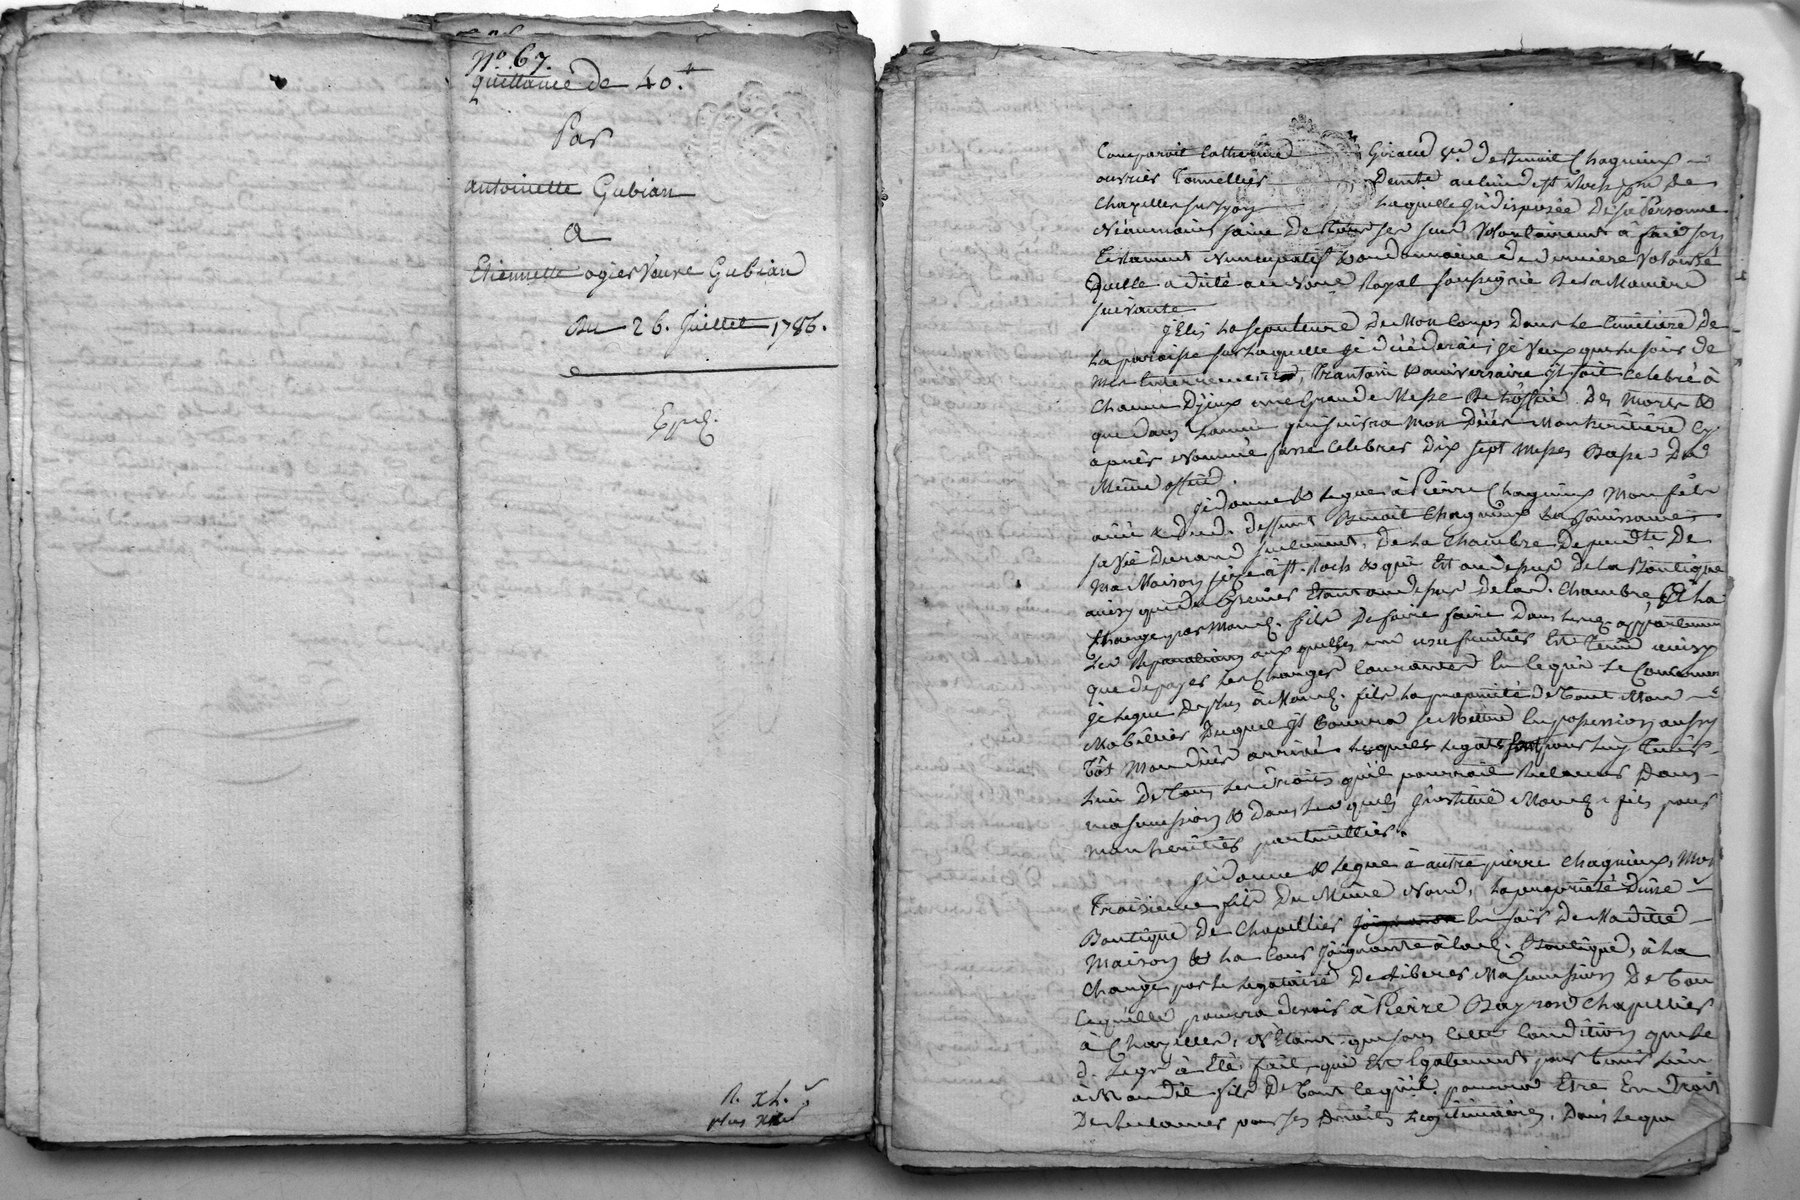 N.o 67.
quittance de 40.tt
Par
antoinette Gubian
a
Etiennette ogier Veuve Gubian
Du 26. Juillet 1786.
Exped.
R. xL. s
plus
Comparoit Catherine Giraud ve. de Benoit Chagnieux
ouvrier Demte. au lieu de st Roch psse de
Chazelles sur Lyon Laquelle indisposée de sa Personne
Néanmoins saine de ses sens Volontairement a fait son
Testament Nuncupatif & ordonnance de derniere Volonté
quelle a dicté au Nore Royal soussigné De la Maniere
suivante
J'Elis la sepulture De Mon Corps Dans Le Cimetiere De
La paroisse sur Laquelle je décéderai; je Veux que Le jour de
Mes Enterrement, Trantain & anniversaire il soit Celebré à
Chacun D'jceux une Grande Messe De L'office Des Morts &
que Dans Lannée qui suivra Mon Décès Mon heritiere Cy
après Nommée fasse Celebrer Dix sept Messes Basses Du
Même office.
Je donne & Legue à Pierre Chagnieux Mon fils
ainé & dud. deffunt Benoit Chagnieux La Jouissance
sa Vie Durand seulement, De La Chambre Dependte. De
Ma Maison size à st. Roch & qui Est au dessus De La Boutique
ainsy que du Grenier Etant au dessus De lad. Chambre, à La
Charge par Mond. fils De faire faire Dans lesd. appartements
Les Reparations aux quelles un usufruitier Est Tenu ainsy
que de payer Les Charges Courantes En ce qui Le Concerne
Je Legue De plus à Mond. fils La propriété de Tout Mon
Mobilier Duquel il pourra se Mettre En possession aussy
Tôt Mon Décès arrivé Lesquels Legats sont pour Luy Tenir
Lieu De Tous Les Droits qu'il pourroit Reclamer Dans
ma succession & Dans Lesquels J'institue Mond. fils pour
mon heritier particulier.
Je Donne & Legue à autre pierre Chagnieux, Mon
Troisieme fils Du Même Nom, La propriété D'une
Boutique De Chapellier En sair De Maditte
Maison & La Cour Joignante à lad. Boutique, à La
Charge par Le Legataire De Liberer Ma succession De Tou
Ce quelle pourra devoir à Pierre Chapellier
à Chazelles, N'Etant que sous cette Condition que Le
d. Legs à Eté fait, qui Est Egalement pour Tenir Lieu
à Mondit fils De Tout Ce qu'il pourroit Etre En Droit
De Reclamer pour ses Droits Legitimaires. Dans Le que